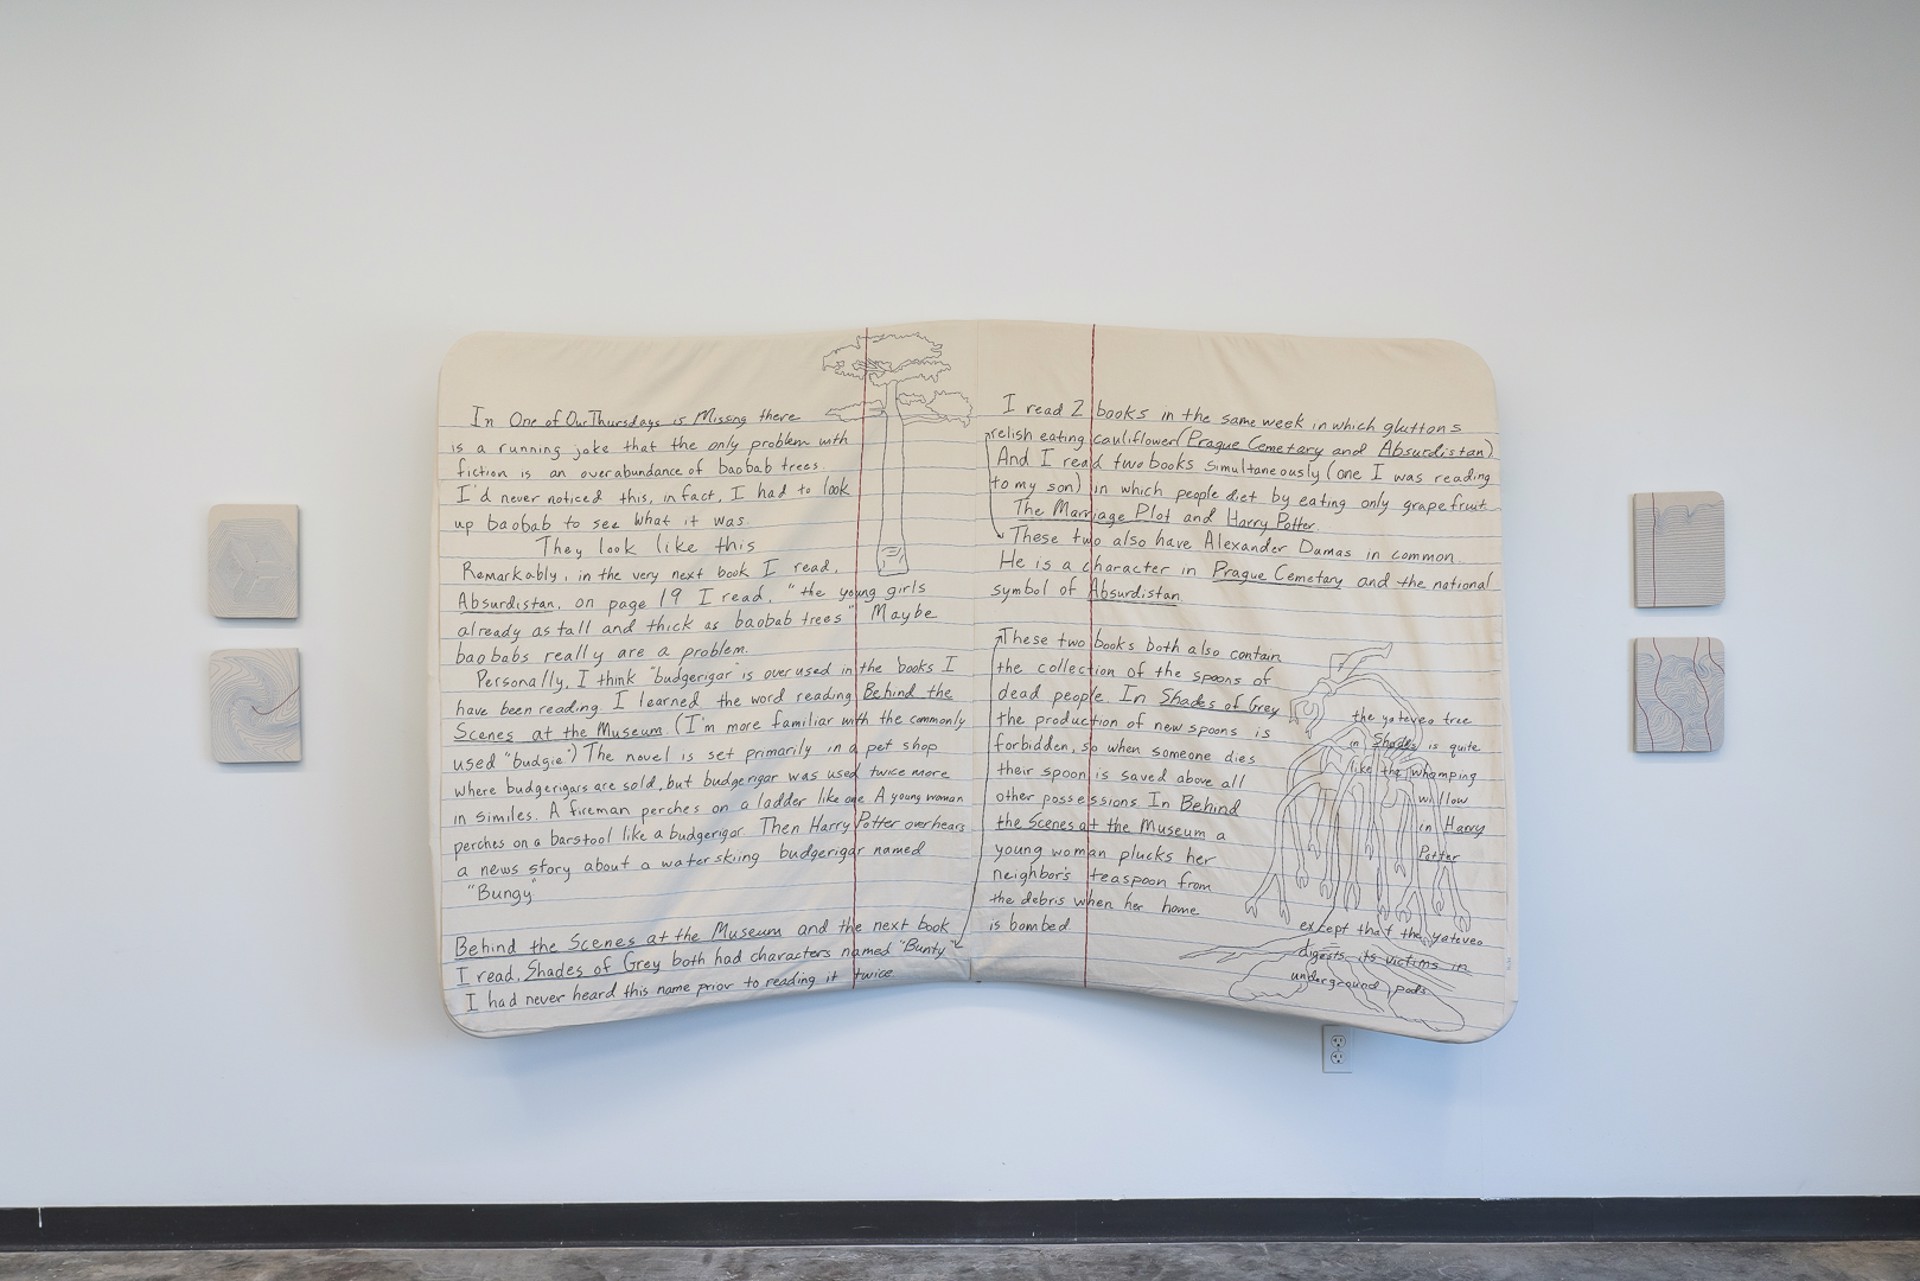 In One of Our Thursdays is Missing there
is a running joke that the only problem with
fiction is an overabundance of baobab trees.
I'd never noticed this, in fact, I had to look
up baobab to see what it was.
They look like this
Remarkably, in the very next book I read,
Absurdistan, on page 19 I read, "the young girls
already as tall and thick as baobab trees" Maybe
baobabs really are a problem.
Personally, I think "budgerigar" is overused in the books I
have been reading. I learned the word reading Behind the
Scenes at the Museum. (I'm more familiar with the commonly
used "budgie".) The novel is set primarily in a pet shop
where budgerigars are sold, but budgerigar was used twice more
in similes. A fireman perches on a ladder like one. A young woman
perches on a barstool like a budgerigar. Then Harry Potter overhears
a news story about a water skiing budgerigar named
"Bungy"
Behind the Scenes at the Museum and the next book
I read, Shades of Grey both had characters named "Bunty"
I had never heard this name prior to reading it twice.
I read 2 books in the same week in which gluttons
relish eating cauliflower (Prague Cemetary and Absurdistan)
And I read two books simultaneously (one I was reading
to my son) in which people diet by eating only grapefruit
The Marriage Plot and Harry Potter.
These two also have Alexander Dumas in common.
He is a character in Prague Cemetary and the national
symbol of Absurdistan.
These two books both also contain
the collection of the spoons of
dead people. In Shades of Grey
the production of new spoons is
forbidden, so when someone dies
their spoon is saved above all
other possessions. In Behind
the Scenes at the Museum a
young woman plucks her
neighbor's teaspoon from
the debris when her home
is bombed.
the yateveo tree
in Shades is quite
like the whomping
willow
in Harry
Potter
except that the yateveo
digests its victims in
underground pods